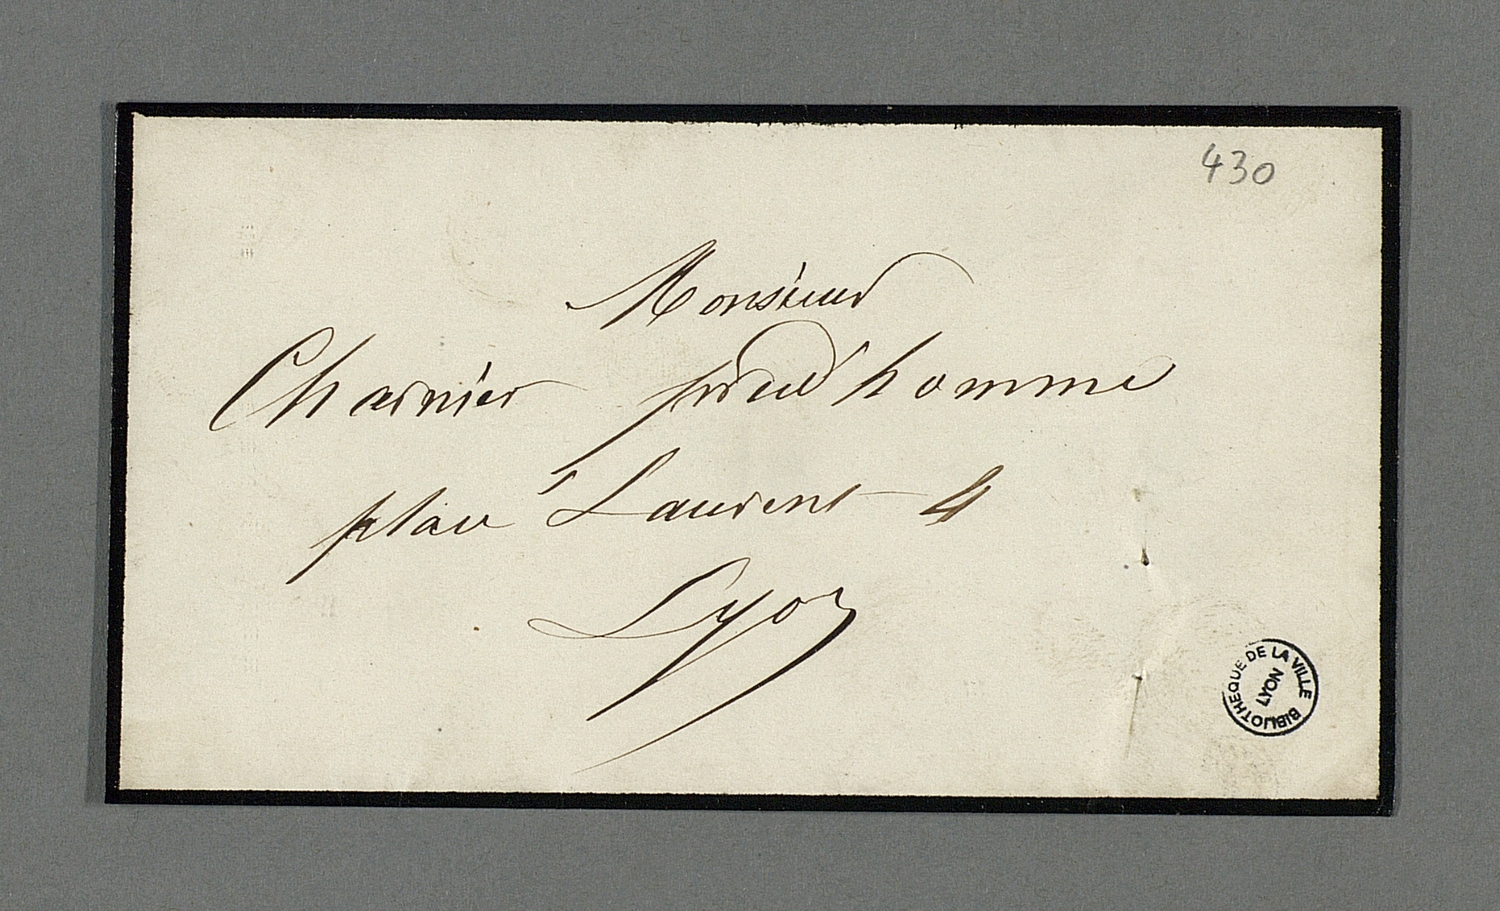 430
Monsieur
Charnier prud'homme
place St Laurent 4
Lyon
BIBLIOTHEQUE DE LA VILLE
LYON